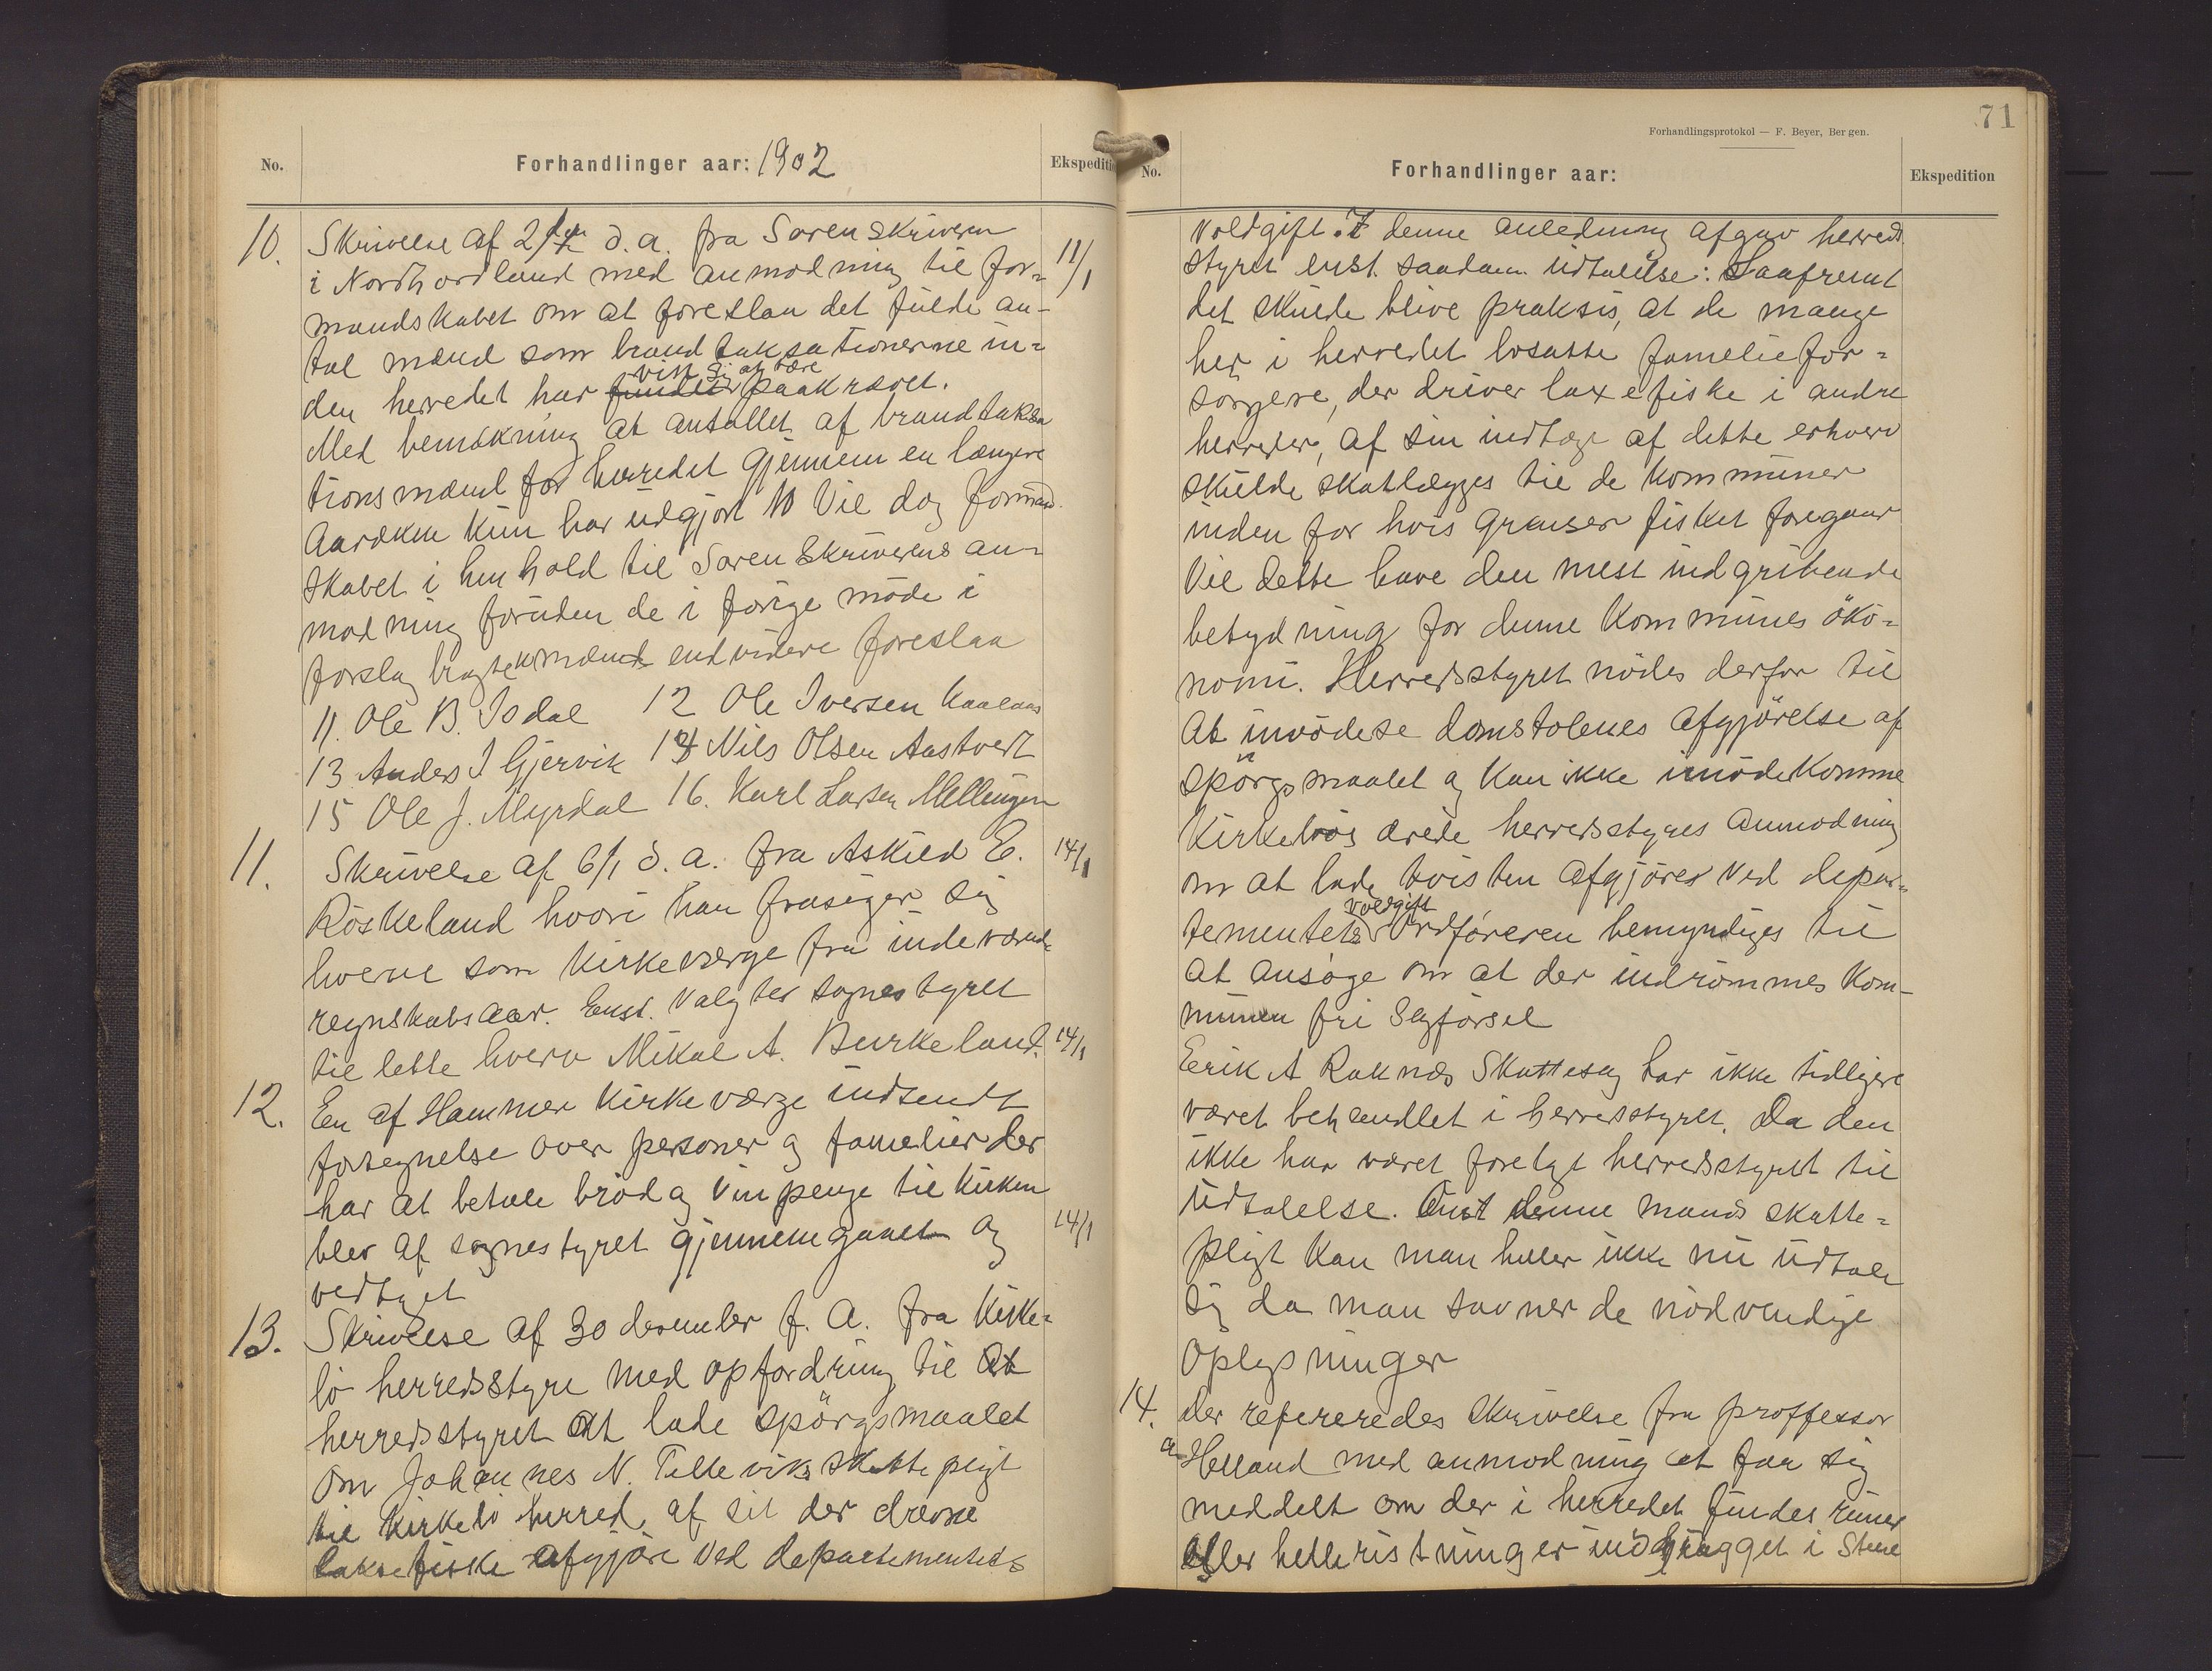 No.
Forhandlinger aar: 1902
Ekspediti
10.
Skrivelse af 2/1 d. a. fra Sorenskriveren
11/1
i Nordhordland med anmodning til for=
mandskabet om at foreslaa det fulde an-
tal mænd som brandtaksationerne in=
vist sig at være
den herredet har fundet paakrævet.
Med bemærkning at antallet af brandtaksa
tionsmænd for herredet gjennem en længere
Aarrække kun har udgjort 10 Vil dog formand
skabet i henhold til Sorenskriverens an=
modning foruden de i forrige møde i
forslag bragte mænd endvidere foreslaa
11. Ole B. Isdal 12 Ole Iversen Kaalaas
13 Anders I Gjervik 14 Nils Olsen Aastvedt
15 Ole J. Myrdal 16. Karl Larsen Mellingen
11.
Skrivelse af 6/1 d. a. fra Askild E.
14/1
Röskeland hvori han frasiger sig
hvervet som Kirkeværge fra indeværende
regnskabsaar. Enst. Valgtes sognestyret
til dette hverv Mikal A. Burkeland.
14/1
12.
En af Hammer Kirkeværge indsendt
fortegnelse over personer og familier der
har at betale bröd og vinpenge til Kirken
blev af sognestyret gjennemgaaet og
14/1
vedtaget
13.
Skrivelse af 30 desember f. A. fra Kirke=
bö herredsstyre med opfordring til at
herredsstyret at lade spörgsmaalet
om Johannes N. Tellevik's skattepligt
til Kirkebö herred, af sit der drevne
laksefiske afgjöre ved departementets
71
Forhandlingsprotokol — F. Beyer, Bergen.
No.
Forhandlinger aar:
Ekspedition
Voldgift. I denne anledning afgav herreds
styret enst. saadan udtalelse: Saafremt
det skulde blive praksis, at de mange
her i herredet bosatte familiefor=
sörgere, der driver laxefiske i andre
herreder, af sin indtægt af dette erhverv
skulde skatlægges til de kommuner
inden for hvis grænser fisket foregaar
Vil dette have den mest indgribende
betydning for denne Kommunes öko=
nomi. Herredsstyret nödes derfor til
at imödese domstolenes afgjörelse af
spörgsmaalet og kan ikke imödekomme
Kirkebös ærede herredsstyres anmodning
om at lade tvisten afgjöres ved depar=
voldgift
tementets Ordföreren bemyndiges til
at ansöge om at der indrömmes Kom-
munen fri Sagförsel
Erik A Raknes Skattesag har ikke tidligere
været behandlet i herredsstyret. Da den
ikke har været forelagt herredsstyret til
Udtalelse. Om denne mands skatte=
pligt kan man heller ikke nu udtale
sig da man savner de nödvendige
Oplysninger
14.
Der refereredes skrivelse fra proffessor
a
Helland med anmodning at faa sig
meddelt om der i herredet findes runer
eller helleristninger indhugget i Stene